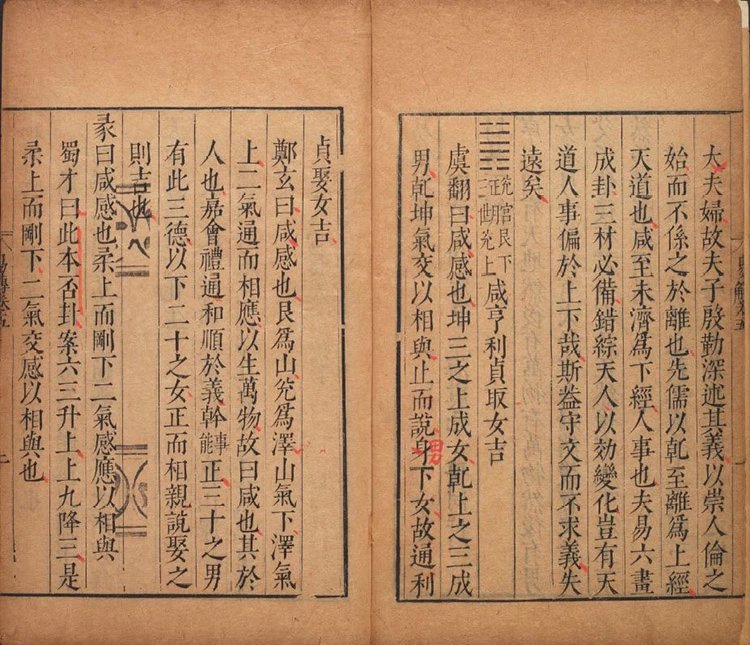 大夫婦故夫子殷勤深述其義以崇人倫之
始而不係之於離也先儒以乾至離爲上經
天道也咸至未濟爲下經人事也夫易六畫
成卦三材必備錯綜天人以効變化豈有天
道人事偏於上下哉斯葢守文而不求義失
遠矣
䷞兊官艮下三世兊上咸亨利貞取女吉
虞翻曰咸感也坤三之上成女乾上之三成
男乾坤氣交以相與止而說身男下女故通利
貞娶女吉
鄭玄曰咸感也艮爲山兊爲澤山氣下澤氣
上二氣通而相應以生萬物故曰咸也其於
人也嘉會禮通和順於義幹事能正三十之男
有此三德以下二十之女正而相親說娶之
則吉也
彖曰咸感也柔上而剛下二氣感應以相與
蜀才曰此本否卦案六三升上上九降三是
柔上而剛下二氣交感以相與也